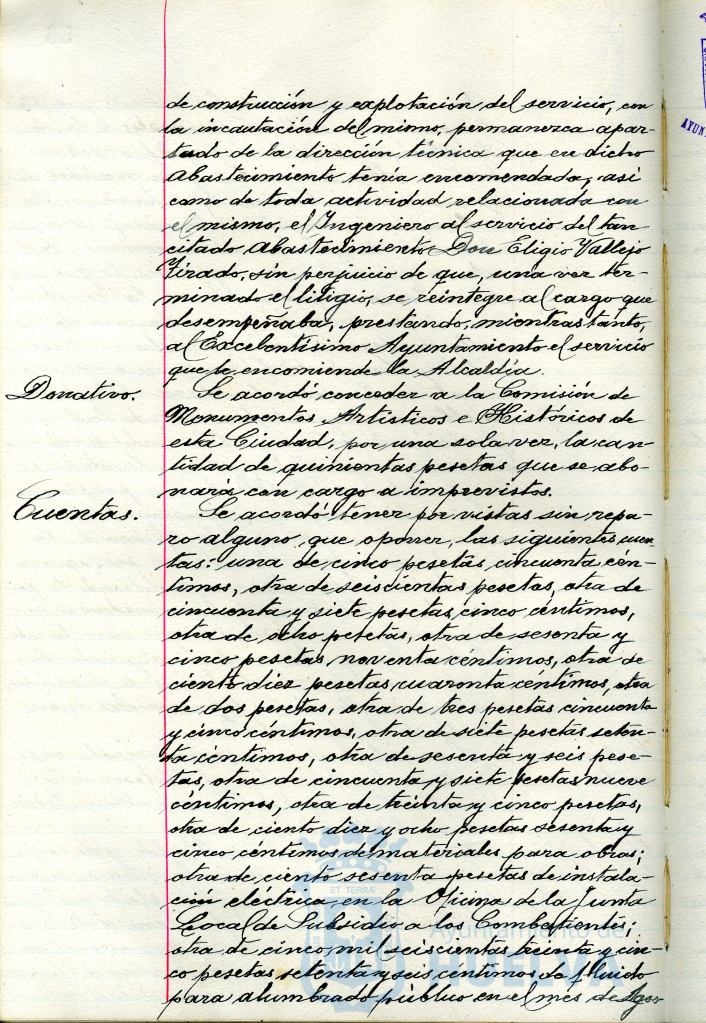 de construcción y explotación del servicio, con
la incautación del mismo, permanezca apar-
tado de la dirección técnica que en dicho
Abastecimiento tenía encomendada, así
como de toda actividad relacionada con
el mismo, el Ingeniero al servicio del tan
citado Abastecimiento Don Eligio Vallejo
Tirado, sin perjuicio de que, una vez ter-
minado el litigio, se reintegre al cargo que
desempeñaba, prestando, mientras tanto,
al Excelentísimo Ayuntamiento el servicio
que le encomiende la Alcaldía.
Donativo. Se acordó conceder a la Comisión de
Monumentos Artísticos e Históricos de
esta Ciudad, por una sola vez, la can-
tidad de quinientas pesetas que se abo-
nará con cargo a imprevistos.
Cuentas. Se acordó tener por vistas sin repa-
ro alguno, que oponer, las siguientes cuen-
tas: una de cinco pesetas, cincuenta cén-
timos, otra de seiscientas pesetas, otra de
cincuenta y siete pesetas, cinco céntimos,
otra de ocho pesetas, otra de sesenta y
cinco pesetas noventa céntimos, otra de
ciento diez pesetas, cuarenta céntimos, otra
de dos pesetas, otra de tres pesetas cincuenta
y cinco céntimos, otra de siete pesetas seten-
ta céntimos, otra de sesenta y seis pese-
tas, otra de cincuenta y siete pesetas nueve
céntimos, otra de treinta y cinco pesetas,
otra de ciento diez y ocho pesetas sesenta y
cinco céntimos de materiales para obras;
otra de ciento sesenta pesetas de instala-
ción eléctrica en la Oficina de la Junta
Local de Subsidio a los Combatientes;
otra de cinco mil seiscientas treinta y cin-
co pesetas, setenta y seis céntimos de flúido
para alumbrado público en el mes de Agos-
ET TERRÆ
Ayuntamiento de
HUELVA